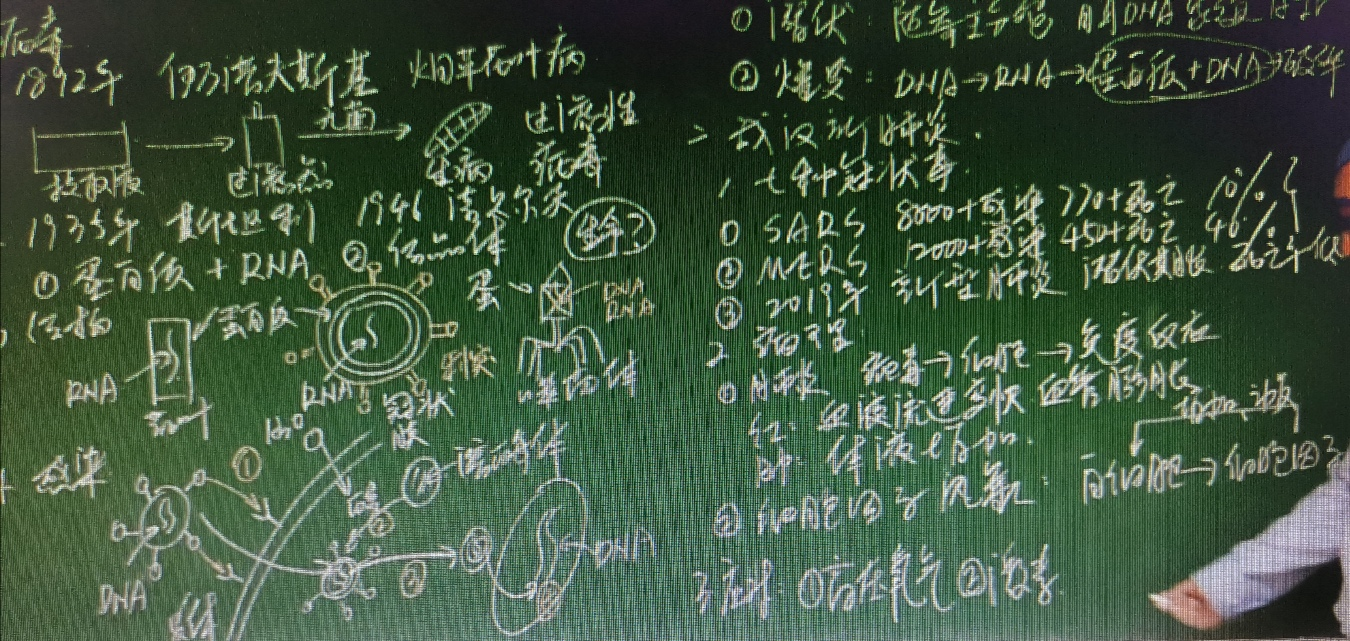 病毒
1892年 伊万诺夫斯基 烟草花叶病
提取液 过滤器 九面 生病 过滤性
病毒
1935年 斯坦利 1946 结晶体
生命?
① 蛋白质 + RNA ②
结构 蛋白质 蛋 DNA
RNA
RNA RNA 刺突 噬菌体
冠状
膜
感染 ① 溶酶体
② ② ③ DNA
DNA
① 潜伏: 随宿主 DNA
② 爆发: DNA→RNA→蛋白质+DNA→破坏
二 武汉新肺炎.
1, 七种冠状毒.
① SARS 8000+感染 770+死亡 10%
② MERS 12000+感染 450+死亡 40%
③ 2019年 新型肺炎 潜伏期长 死亡率低
2 病理:
① 肺炎 病毒→细胞→免疫反应
红: 血液流速多快 血管膨胀
肿: 体液增加.
② 细胞因子风暴: 白细胞→细胞因子
3 症状: ① 高压氧气 ② 激素.